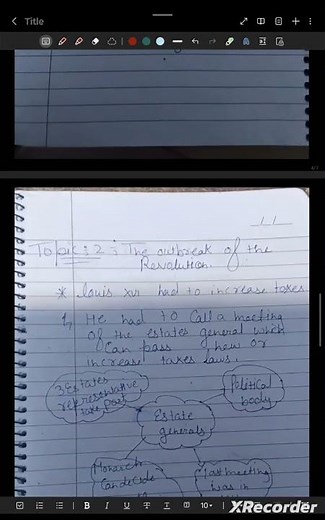 Title
Topic: 2 : The outbreak of the
Revolution.
* Louis XVI had to increase taxes
He had to call a meeting
of the estates general which
can pass how or
increase taxes laws.
3 Estates
representative
take part
Political
body
Estate
generals
Monarch
can decide
Last meeting
was in
XRecorder